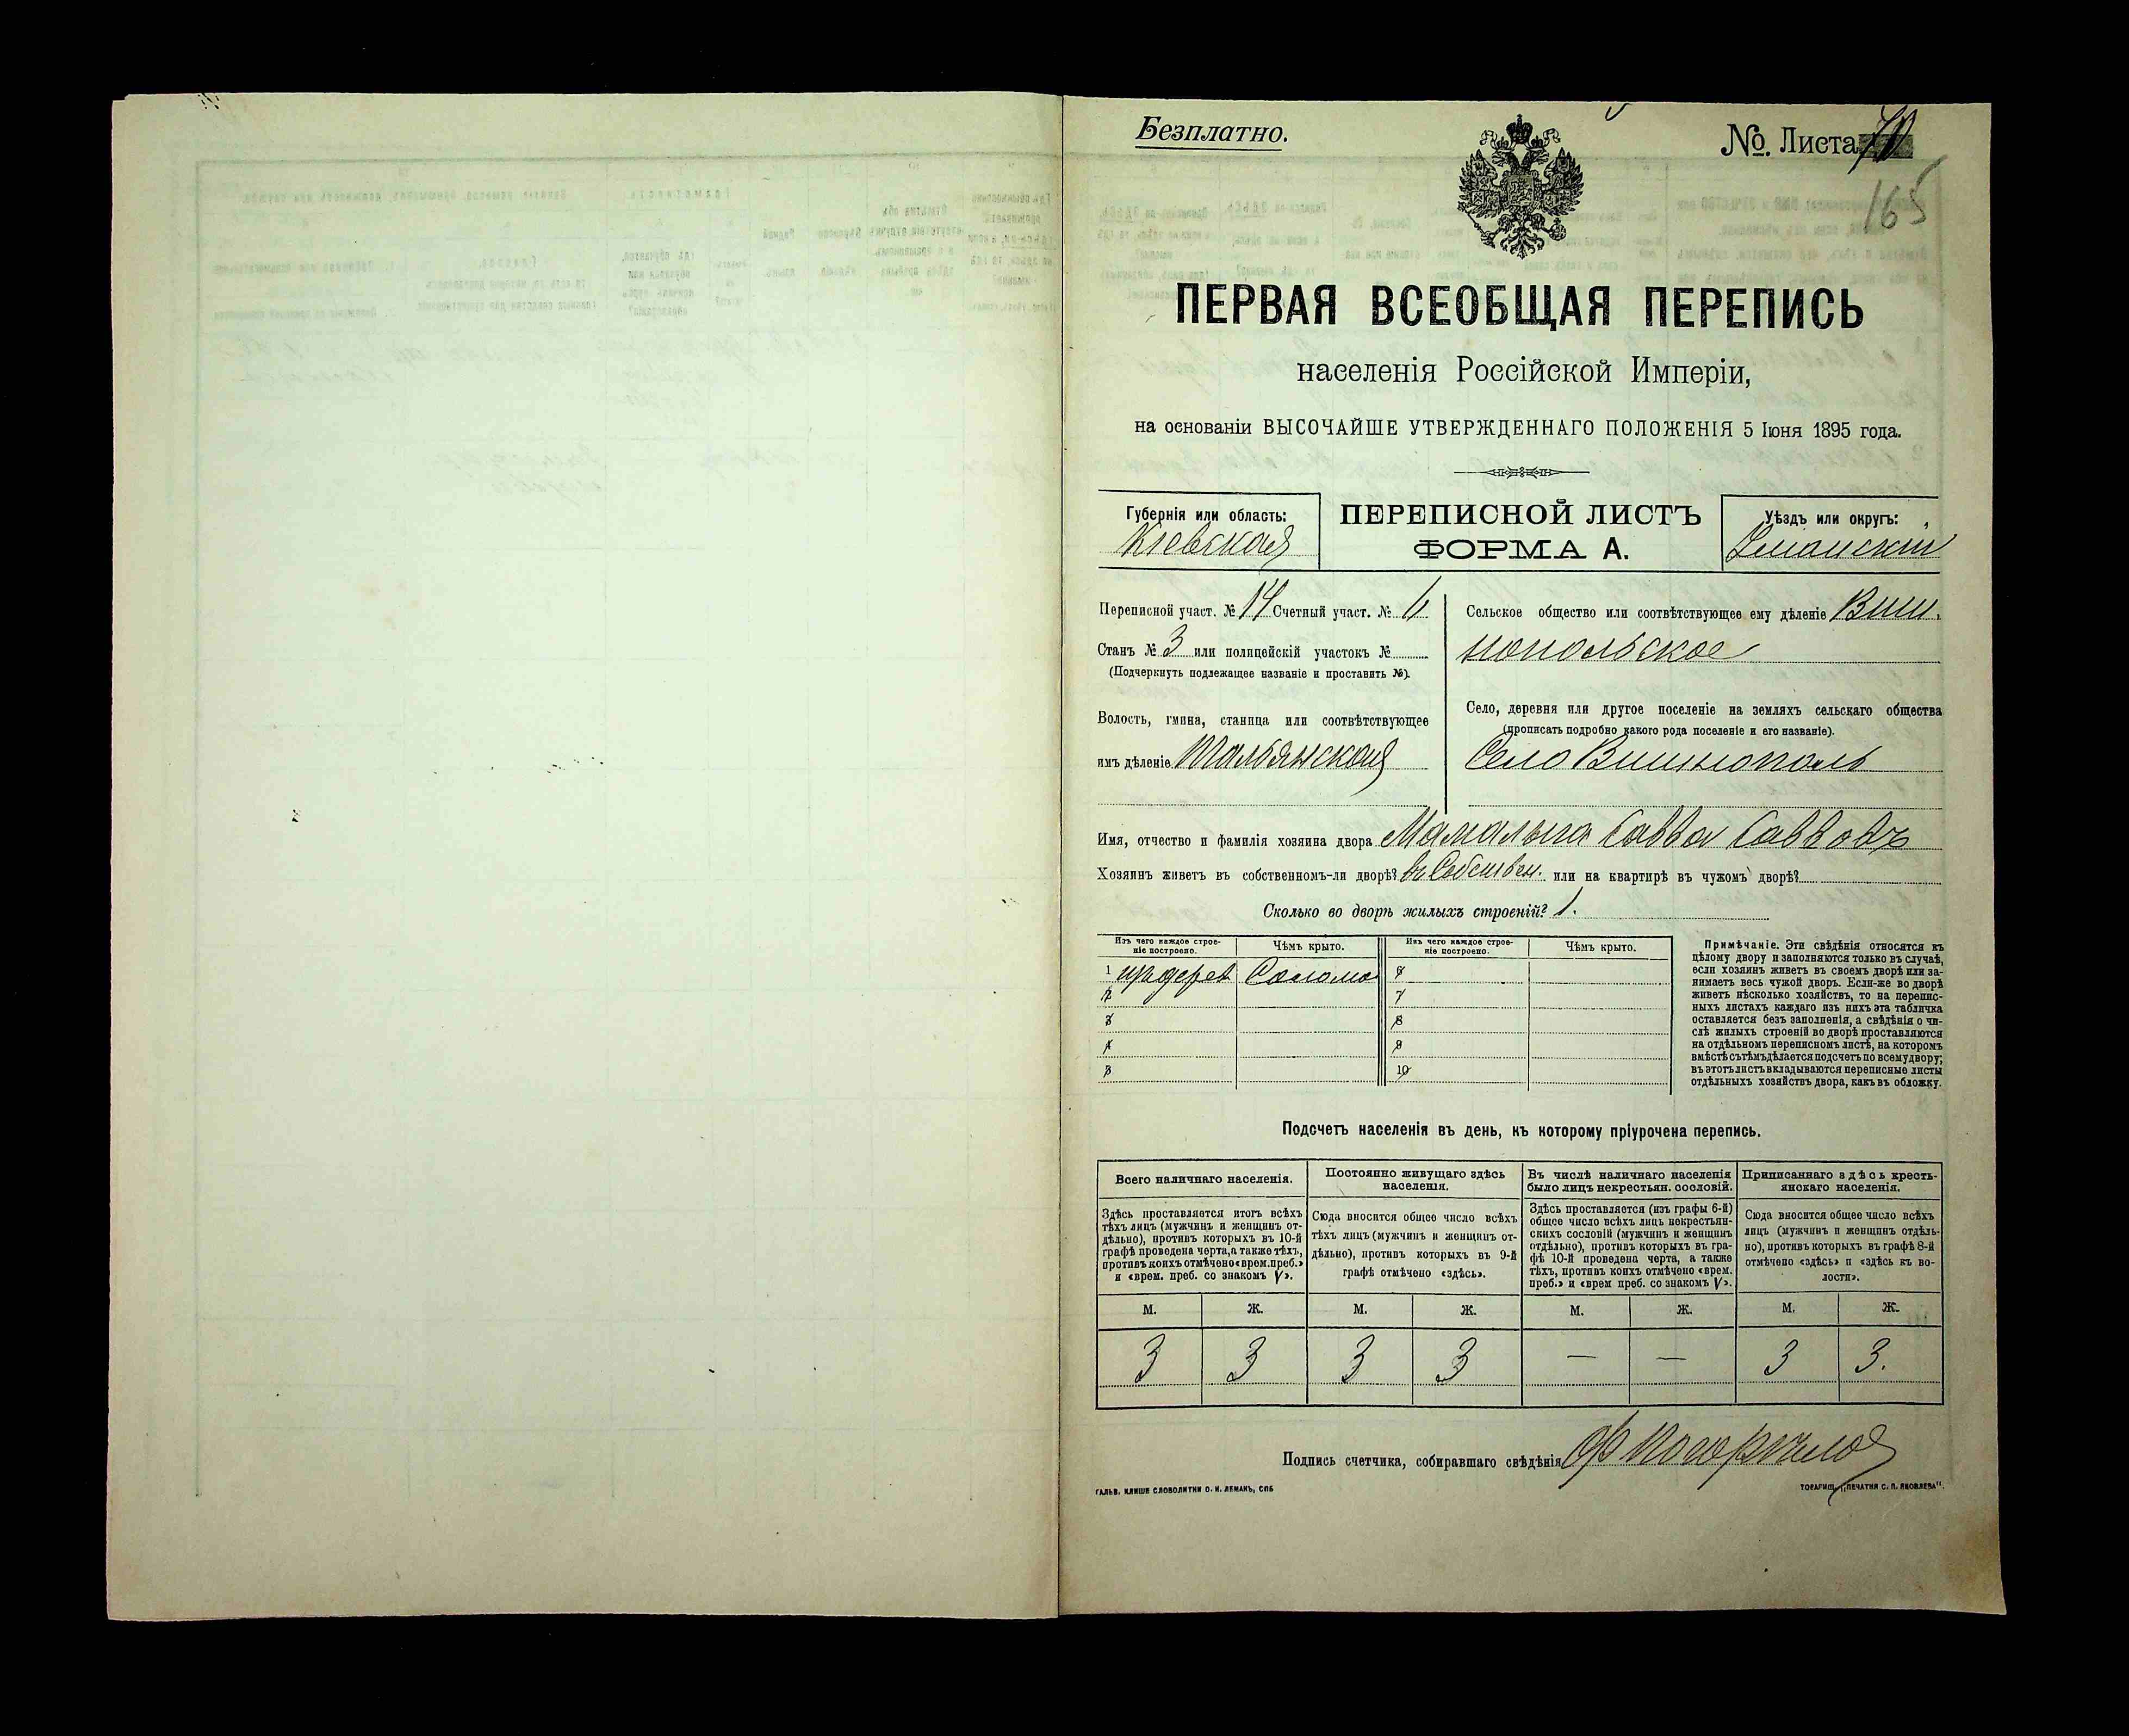 Безплатно.
№. Листа 70
165
ПЕРВАЯ ВСЕОБЩАЯ ПЕРЕПИСЬ
населенія Россійской Имперіи,
на основаніи ВЫСОЧАЙШЕ УТВЕРЖДЕННАГО ПОЛОЖЕНІЯ 5 Іюня 1895 года.
Губернія или область:
Кіевская
ПЕРЕПИСНОЙ ЛИСТЪ
ФОРМА А.
Уѣздъ или округъ:
Уманскій
Переписной участ. № 14 Счетный участ. № 6
Станъ № 3 или полицейскій участокъ №
(Подчеркнуть подлежащее названіе и проставить №).
Волость, гмина, станица или соотвѣтствующее
имъ дѣленіе Тальянская
Сельское общество или соотвѣтствующее ему дѣленіе Виш.
нопольское
Село, деревня или другое поселеніе на земляхъ сельскаго общества
(прописать подробно какого рода поселеніе и его названіе).
Село Вишнополь
Имя, отчество и фамилія хозяина двора Мамалыга Савва Саввовъ
Хозяинъ живетъ въ собственномъ-ли дворѣ? въ Собствен. или на квартирѣ въ чужомъ дворѣ?
Сколько во дворѣ жилыхъ строеній? 1.
Изъ чего каждое строе-
ніе построено.
Чѣмъ крыто.
Изъ чего каждое строе-
ніе построено.
Чѣмъ крыто.
1 изъ дерев Солома 6
2 7
3 8
4 9
5 10
Примѣчаніе. Эти свѣдѣнія относятся къ
цѣлому двору и заполняются только въ случаѣ,
если хозяинъ живетъ въ своемъ дворѣ или за-
нимаетъ весь чужой дворъ. Если-же во дворѣ
живетъ нѣсколько хозяйствъ, то на перепис-
ныхъ листахъ каждаго изъ нихъ эта табличка
оставляется безъ заполненія, а свѣдѣнія о чи-
слѣ жилыхъ строеній во дворѣ проставляются
на отдѣльномъ переписномъ листѣ, на которомъ
вмѣстѣ съ тѣмъ дѣлается подсчетъ по всему двору;
въ этотъ листъ вкладываются переписные листы
отдѣльныхъ хозяйствъ двора, какъ въ обложку.
Подсчетъ населенія въ день, къ которому пріурочена перепись.
Всего наличнаго населенія.
Здѣсь проставляется итогъ всѣхъ
тѣхъ лицъ (мужчинъ и женщинъ от-
дѣльно), противъ которыхъ въ 10-й
графѣ проведена черта, а также тѣхъ,
противъ коихъ отмѣчено «врем. преб.»
и «врем. преб. со знакомъ V».
Постоянно живущаго здѣсь
населенія.
Сюда вносится общее число всѣхъ
тѣхъ лицъ (мужчинъ и женщинъ от-
дѣльно), противъ которыхъ въ 9-й
графѣ отмѣчено «здѣсь».
Въ числѣ наличнаго населенія
было лицъ некрестьян. сословій.
Здѣсь проставляется (изъ графы 6-й)
общее число всѣхъ лицъ некрестьян-
скихъ сословій (мужчинъ и женщинъ
отдѣльно), противъ которыхъ въ гра-
фѣ 10-й проведена черта, а также
тѣхъ, противъ коихъ отмѣчено «врем.
преб.» и «врем преб. со знакомъ V».
Приписаннаго здѣсь кресть-
янскаго населенія.
Сюда вносится общее число всѣхъ
лицъ (мужчинъ и женщинъ отдѣль-
но), противъ которыхъ въ графѣ 8-й
отмѣчено «здѣсь» и «здѣсь къ во-
лости».
М. Ж. М. Ж. М. Ж. М. Ж.
3 3 3 3 — — 3 3.
Подпись счетчика, собиравшаго свѣдѣнія
ГАЛЬВ. КЛИШЕ СЛОВОЛИТНИ О. И. ЛЕМАНЪ, СПБ
ТОВАРИЩ. „ПЕЧАТНЯ С. П. ЯКОВЛЕВА".